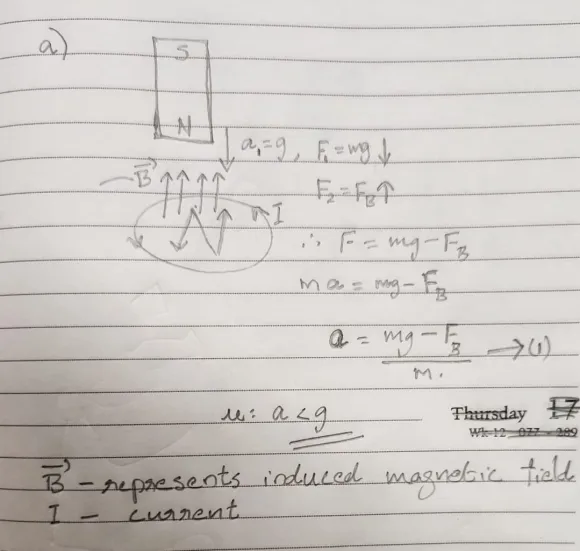 a)
S
N
a₁=g, F₁=mg↓
B⃗ ↑↑↑↑
F₂=F_B↑
I
∴ F = mg-F_B
ma = mg-F_B
a = mg-F_B / m. →(1)
a<g
Thursday 17
Wk 12 077 - 289
B⃗ - represents induced magnetic field
I - current